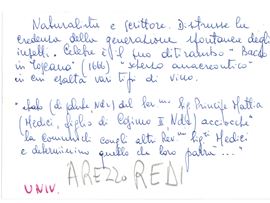 Naturalista e scrittore. Distrusse la
credenza della generazione spontanea degli
insetti. Celebre è il suo ditirambo "Bacco
in Toscana" (1666) "scherzo anacreontico"
in cui esalta vari tipi di vino.
(di Ndr) del Ser.mo Sig Principe Mattia
(Medici, figlio di Cosimo II Ndr) acciocchè
la comunichi cogli altri Ser.mi Sig.ri Medici
e determinino quello che loro parrà ..."
AREZZO REDI
UNIV.